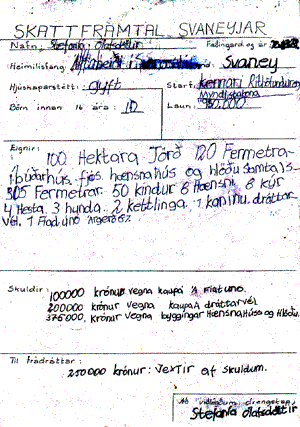 SKATTFRAMTAL SVANEYJAR
Nafn, Stefanía Ólafsdóttir Fæðingard og ár
Heimilisfang Svaney
Hjúskaparstétt: gyft Starf. Kennari Rithöfundur og
Myndlistakona
Börn innan 16 ára: 10 Laun:
Eignir:
100 Hektara Jörð 120 Fermetra-
íbúðarhús, fjós, hænsnahús og hlöðu samtals-
305 Fermetrar. 50 kindur 8 Hænsni 8 kýr
4 Hesta 3 hunda 2 kettlinga. 1 kanínu dráttar-
vél. 1 Fiad únó
Skuldir:
100000 krónur vegna kaupa á Fiat uno.
200000 krónur vegna kaupa á dráttarvél
375000. krónur vegna byggingar Hænsnahúss og Hlöðu.
Til frádráttar:
250000 krónur: vextir af skuldum.
Stefanía Ólafsdóttir